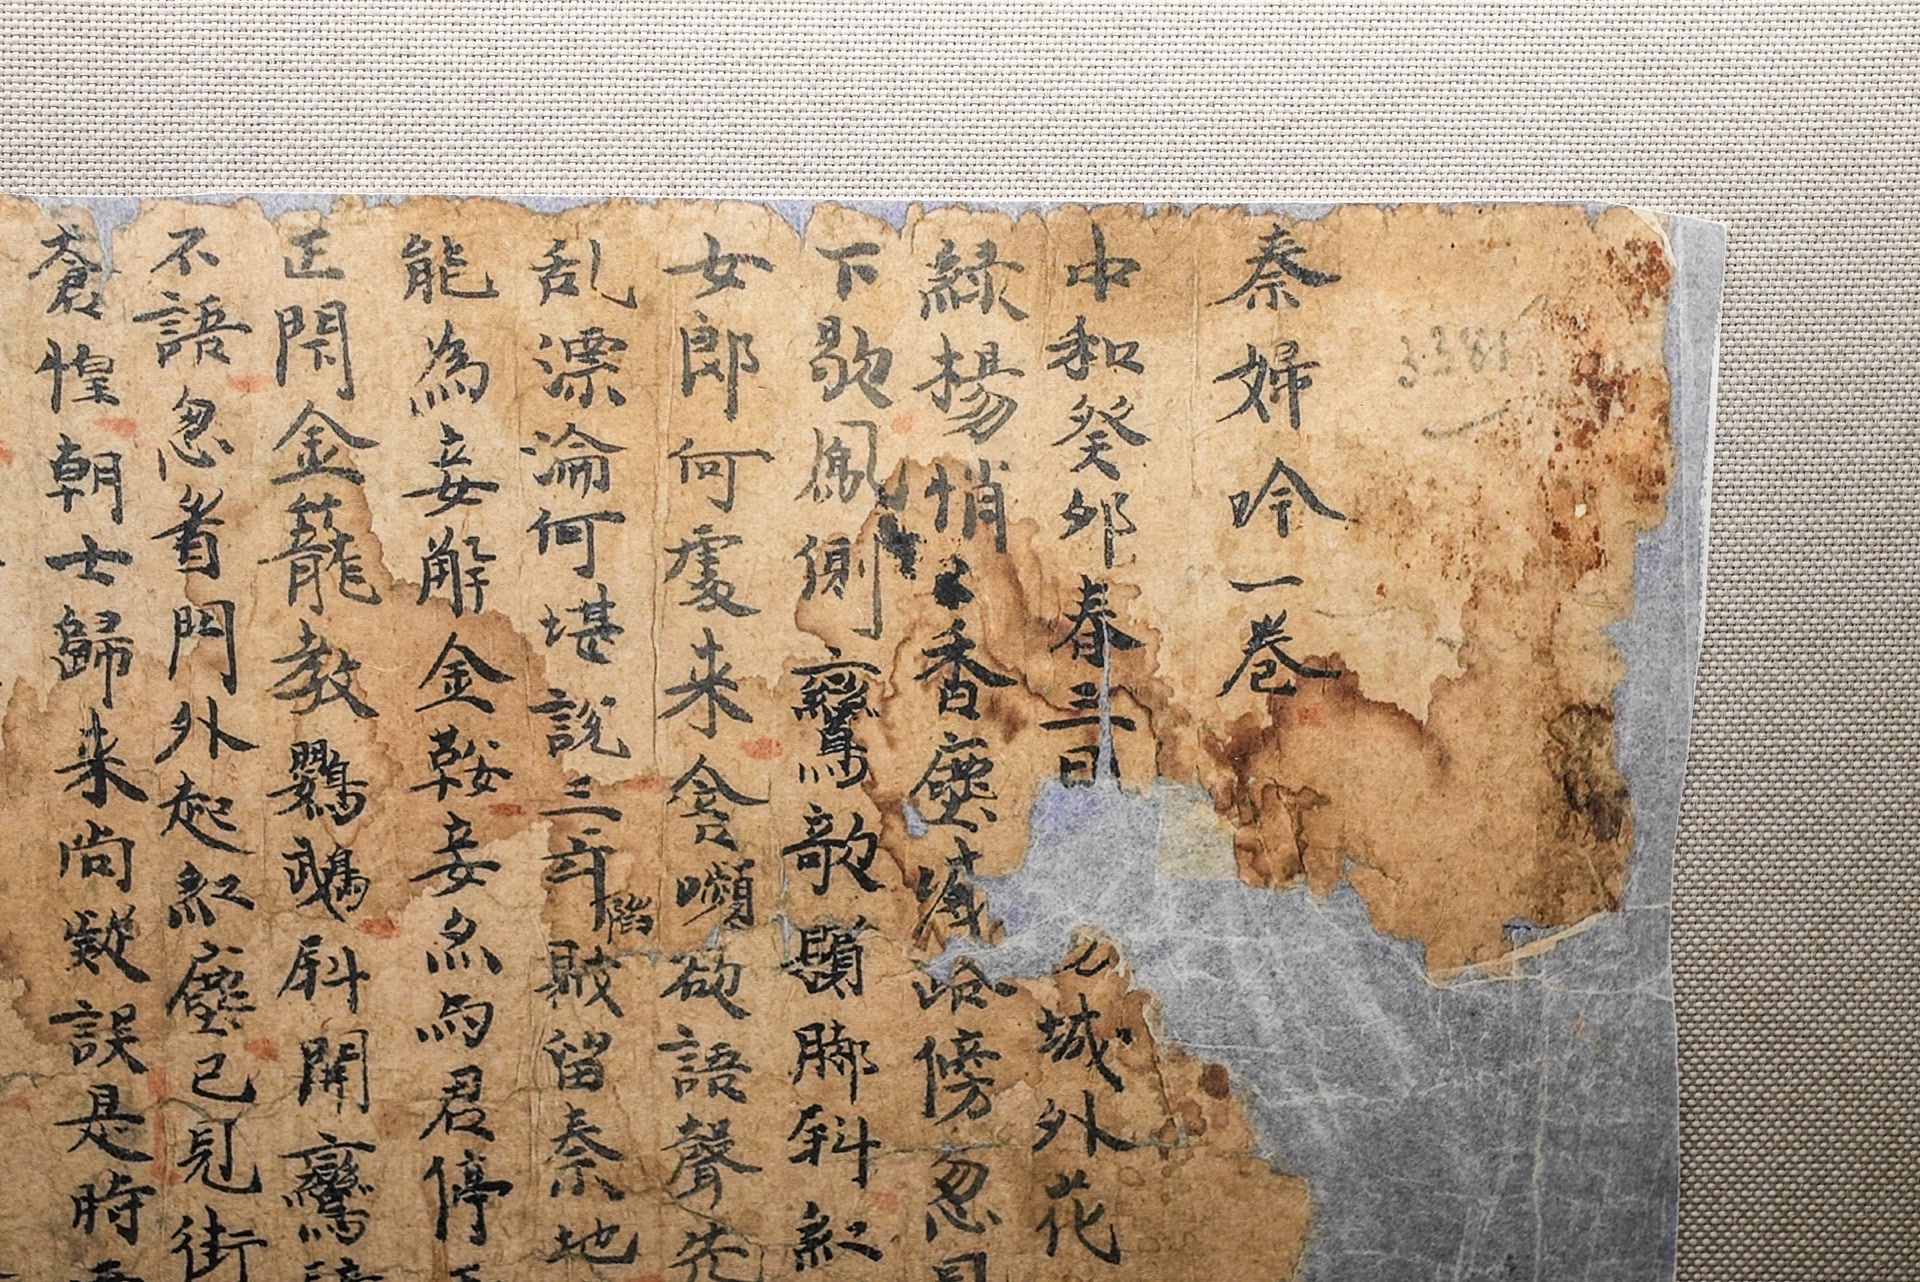 秦婦吟一卷
3381
中和癸卯春三日城外花
緑楊悄〻香塵滅路傍忽見
下歇鳳側鸞歌鬢脚斜紅
女郎何處来含嚬欲語聲先
乱漂淪何堪說三年陷賊留秦地
能為妾解金鞍妾為君停
匡閇金蘢教鸚鵡斜開鸞
不語忽看門外起紅塵已見街
蒼惶朝士歸来尚疑誤是時